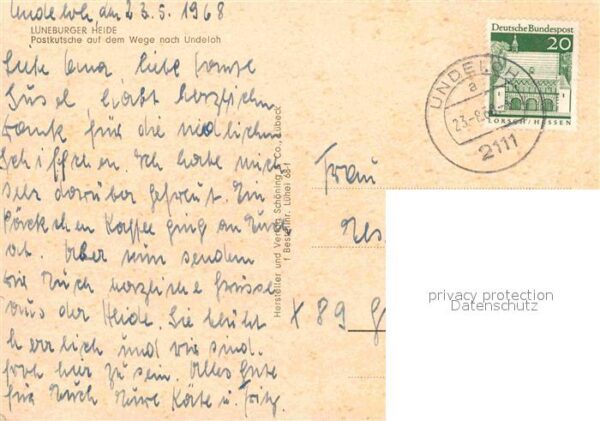 Undeloh, am 23.8. 1968
LÜNEBURGER HEIDE
Postkutsche auf dem Wege nach Undeloh
Gute Oma, liebe Tante
habt herzlichen
Dank für die niedlichen
Schiffchen. Ich habe mich
sehr darüber gefreut. Ein
Päckchen Kaffee ging an Euch
ab. Aber nun senden
wir Euch herzliche Grüsse
aus der Heide. Sie blüht
herrlich und wir sind
froh hier zu sein. Alles Gute
für Euch Eure Käte u. Fritz.
Hersteller und Verlag Schöning & Co., Lübeck
Bestellnr. Lühei 68
Deutsche Bundespost
20
LORSCH/HESSEN
UNDELOH
a
23.-8.68
2111
Frau
X 89 G
privacy protection
Datenschutz